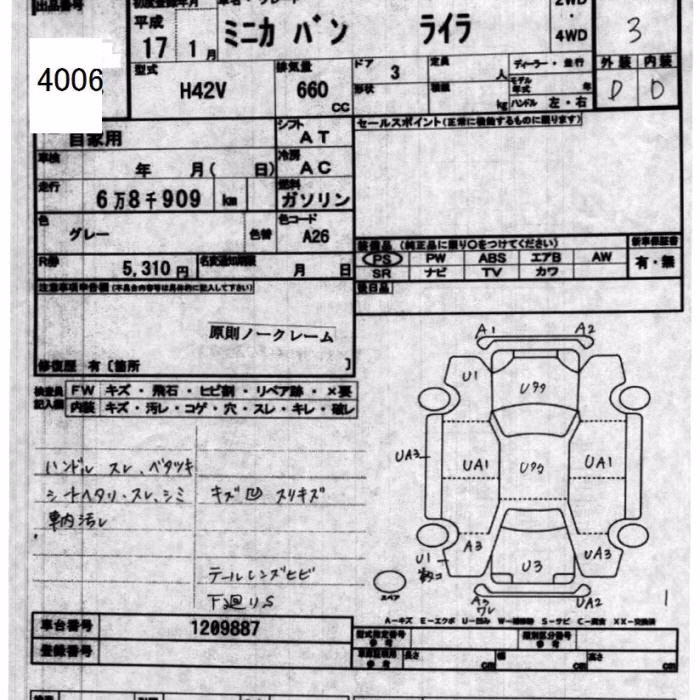 出品番号 初度登録年月 車名・グレード 2WD
平成 ・
17 1月 ミニカ バン ライラ 4WD 3
4006
型式 排気量 ドア 3 定員 人 ディーラー・並行 外装 内装
H42V 660 CC 形状 積載 kg モデル年式 年 D D
ハンドル 左・右
自家用 シフト AT セールスポイント(正常に機能するものに限ります)
車検 年 月( 日) 冷房 AC
走行 6万8千909 km 燃料 ガソリン
色 グレー 色替 色コード A26
装備品 (純正品に限り○をつけてください) 新車保証書
R券 5,310円 名変通知期限 月 日 PS PW ABS エアB AW 有・無
SR ナビ TV カワ
注意事項申告欄(不具合内容等は具体的に記入して下さい) 後日品
原則ノークレーム
修復歴 有〔箇所 〕
A1 A2
検査員記入欄 FW キズ・飛石・ヒビ割・リペア跡・×要
内装 キズ・汚レ・コゲ・穴・スレ・キレ・破レ
U1
UA3 UA1 UA1
ハンドル スレ、ベタツキ
シートヘタリ・スレ、シミ キズ 凹 スリキズ
車内汚レ
A3 U3 UA3
U1
テールレンズヒビ
下廻りS
スペア A3 ワレ UA2 1
A−キズ E−エクボ U−凹み W−補修跡 S−サビ C−腐食 XX−交換済
車台番号 1209887 型式指定番号 参考 類別区分番号 参考
登録番号 車両証明用 参考 長さ cm 幅 cm 高さ cm